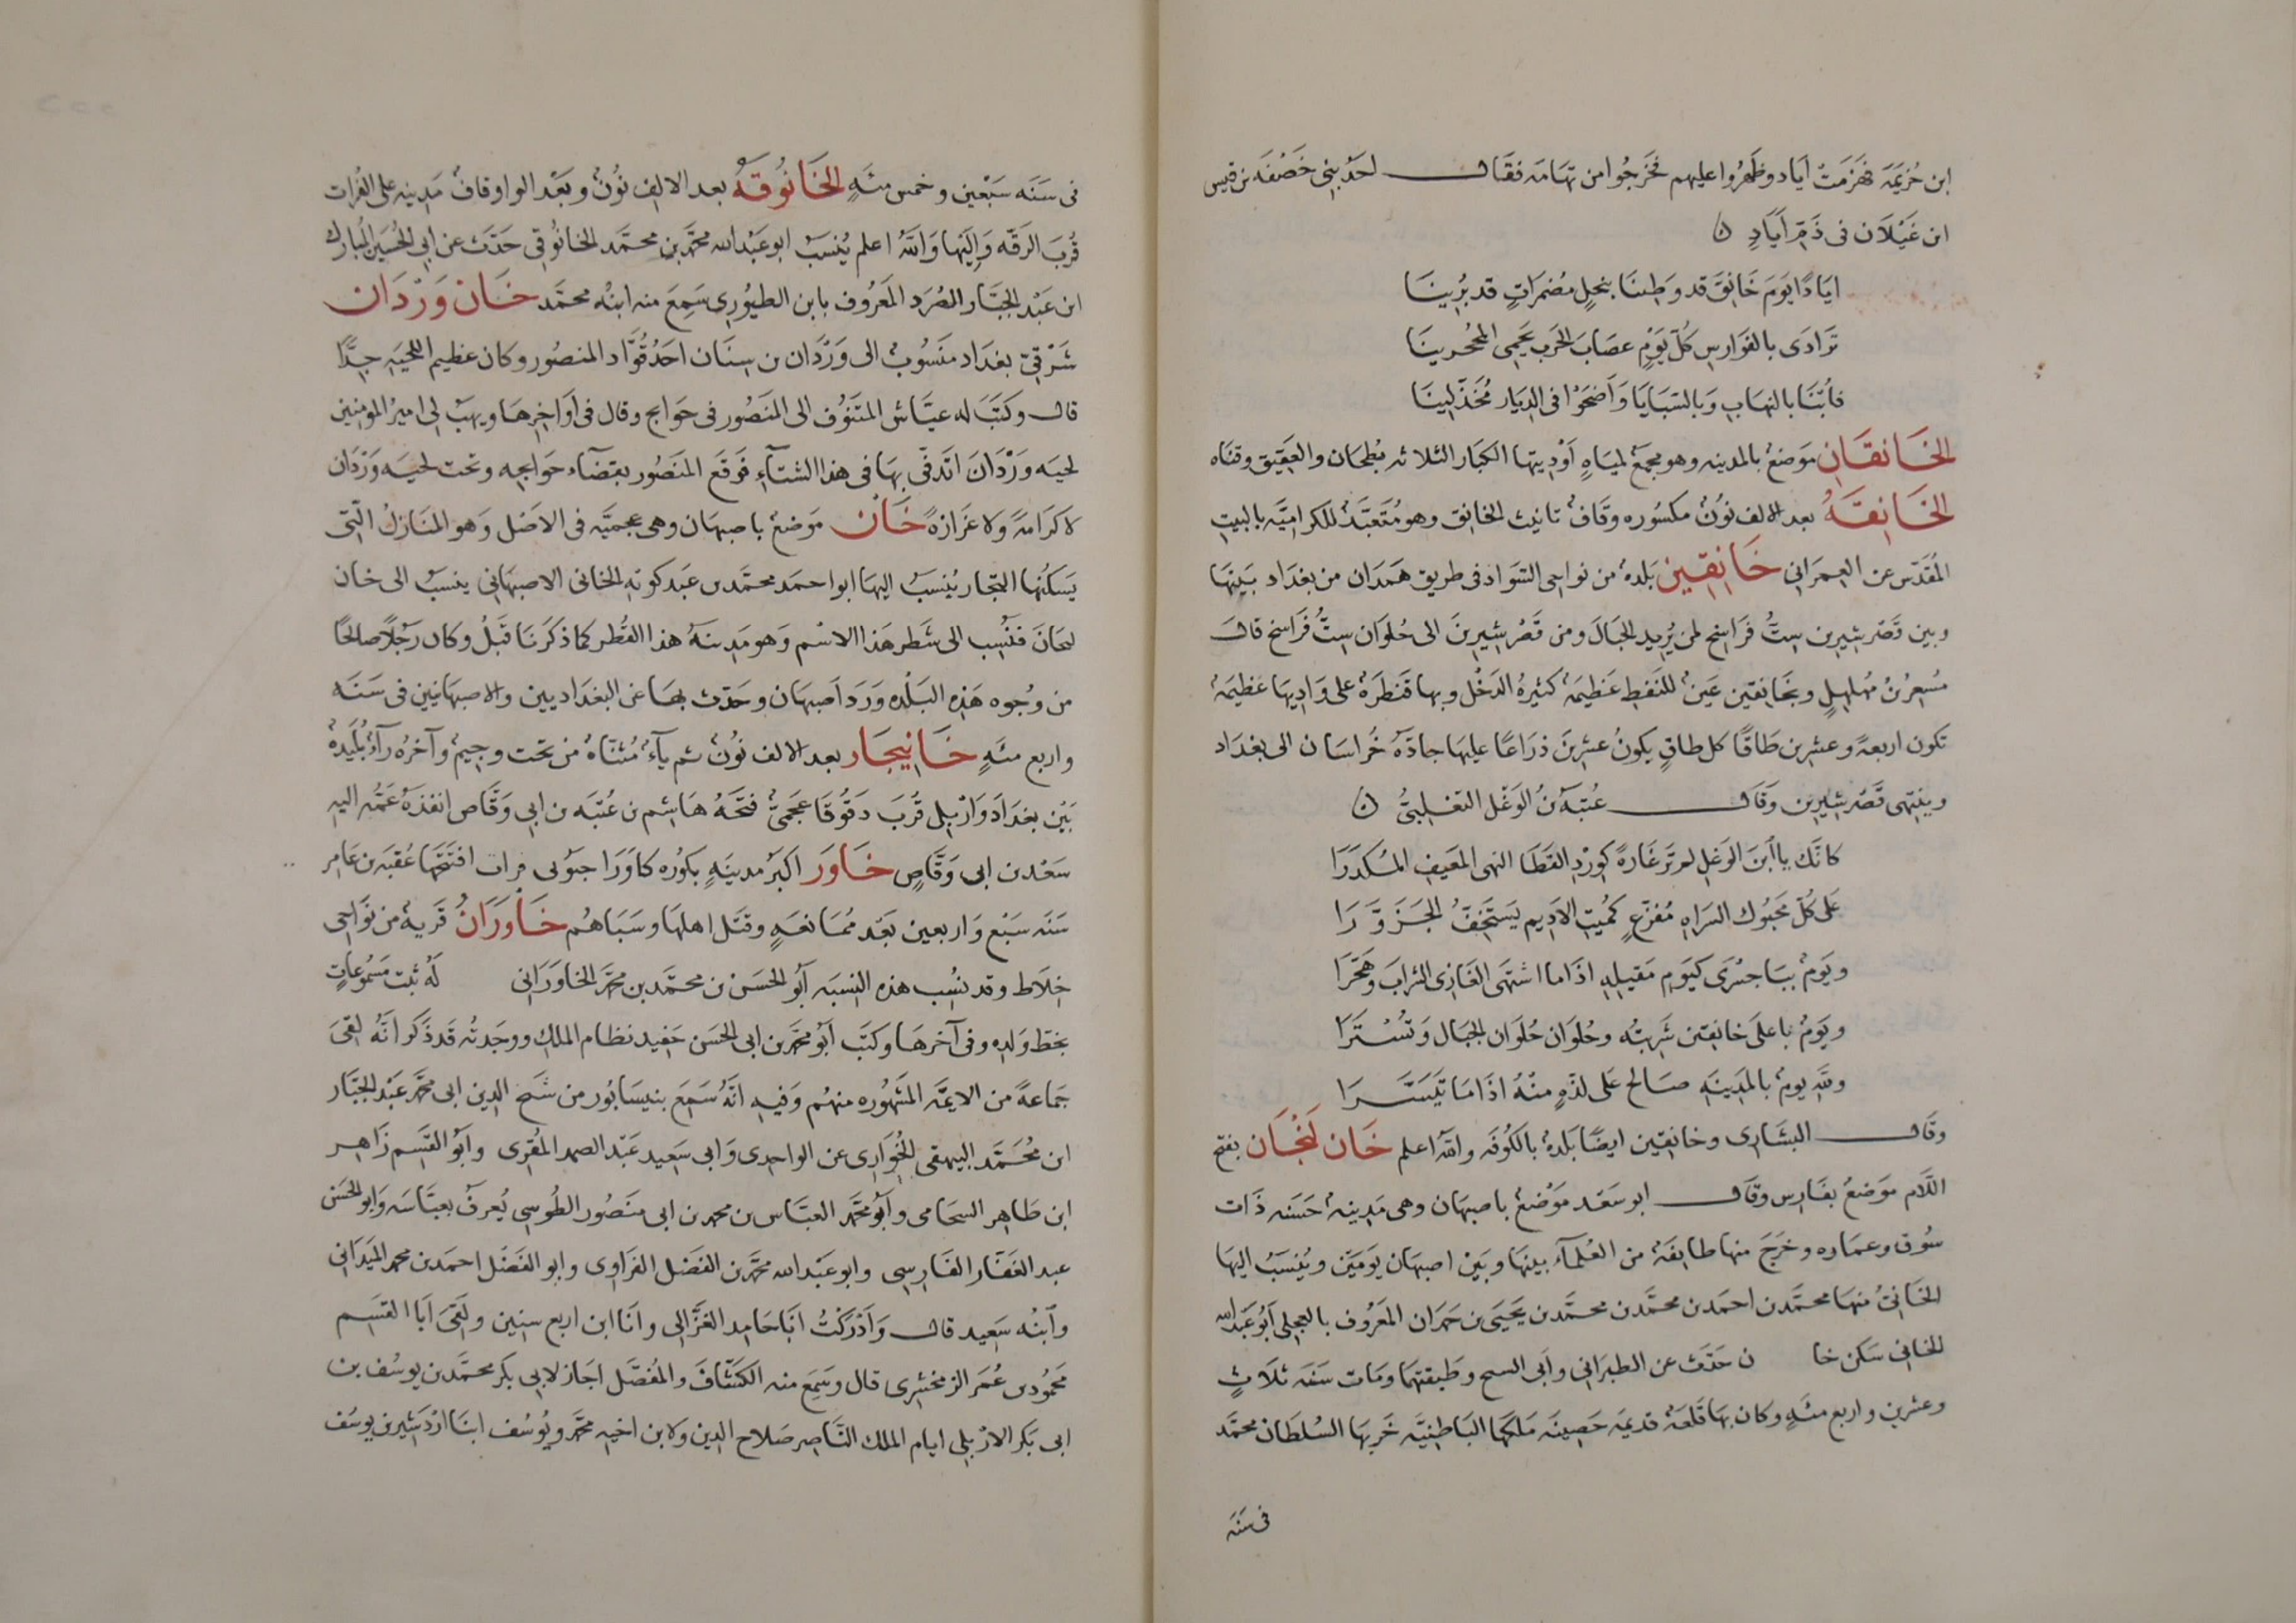 ابن خُزيمَة فهَزمَتْ اَياد وظَهرُوا عليهم فخَرجُوا من تهَامَة فقَال احَد بنى خَصَفَه بن قيس
ابن غَيْلَان فى ذَمّ اَيَادٍ ن
ايَادًا يَوَمَ خَانِقَ قد وَطِئنَا بنخيلٍ مُضمَراتٍ قد بُرينَا
تَرَادَى بالفَوارسِ كُلّ يَوَمٍ عصَابَ الحَرب تَحمى المُحجرينَا
فأبْنَا بالنهَابِ وَبالسَبَايَا وَاَضحَوْا فى الديَار مُخَذّلينَا
الخَانقَانِ مَوَضعْ بالمدينه وهو مجمَعْ لميَاهِ اَوْديتها الكبَار الثلاثه بُطحَان والعَقيق وقنَاه
الخَانِقَهُ بعد الالف نوُنْ مكسُوره وقَافْ تانيث الخانق وهو مُتَعبَّدْ للكراميَّه بالبيت
المُقَدّس عن العمرَانى خَانِقِين بَلدهْ من نواحى السَوَاد فى طريق هَمَدَان من بغدَاد بَينهَا
وبين قَصْر شيرين ستُّ فرَاسخ لمن يُريد الجبَالَ ومن قَصْر شيرينَ الى حُلوَان ستُّ فَرَاسخ قال
مُسعرْ بنْ مُهلهلٍ وبخَانِقين عَينْ للنَفط عَظيمَهْ كثيرهُ الدَخْل وبها قَنطَرهْ على وَاديهَا عَظيمَهْ
تكون اربعهً وعشرين طَاقًا كل طاقٍ يكونُ عشرينَ ذرَاعًا عليهَا جادَّهُ خُراسَان الى بغدَاد
وينتهى قَصْر شيرين وَقَال عُتبَهُ بنُ الوَغْل التغلبىُّ ن
كانَّك يا اُبنَ الوَغلِ لم ترَ غَارهً كوِرْدِ القَطَا النهى المَعيفَ المُكدَرَا
عَلى كُلّ محَبُوك السَرَاهِ مُفزَّعٍ كمُيت الاَديم يَستَخفّ الحَزَوَّرَا
ويَومْ بباجسْرَى كيَومِ مَقيلهِ اذَا ما اشتهَى الغَازى الشرابَ وهَجَّرَا
ويَومُ باعلى خانقين شَربتُه وحُلوَان حُلوَان الجبَال وَتُسْتَرَا
وللّهِ يومُ بالمدَينَهِ صَالح عَلى لذَّهٍ منهُ اذَا مَا تيَسَّرَا
وقَال البشَارى وخانقين ايضًا بَلدهْ بالكُوفَه والله اعلم خَان لَنْجَان بفتح
اللَام مَوَضعُ بفَارس وقَال ابو سَعْد مَوْضعْ باصبهَان وهى مَدينهْ حَسَنَه ذَات
سُوق وعمَاره وخَرَج منها طَايفَهْ من العُلَمآءِ بينهَا وبَينْ اصبهَان يَومَين ويُنسَبُ اليهَا
الخَانىْ منهَا محمَّد بن احمَد بن محمَّد بن محمَّد بن يَحيَى بن حَمدَان المَعرُوف بالعجلى اَبُو عَبْد الله
الخانى سَكن خا ن حَدّثَ عن الطبرَانى وَاَبى السح وطَبقتهمَا ومَات سَنَه ثلاَثٍ
وعشرين واربع مئَهٍ وكان بهَا قَلعَهْ قديمَه حَصِينَه مَلَكَهَا البَاطنيَّه خَربهَا السُلطَان محمَّد
فى سَنَه
فى سَنَه سَبْعين وخمس مئَهٍ الخَانُوقَهُ بعد الالف نوُنْ وبَعْد الواو قافْ مَدينه على الفُرات
قُربَ الرَقَّه وَالَيهَا وَاللهُ اعلم يُنسَبُ ابو عَبْد الله محمَّد بن محمَّد الخانُوقى حَدَّثَ عن ابى الحُسَين المُبارك
ابن عَبْد الجبَّار الصُرَد المَعرُوف بابن الطيُورى سَمِعَ منه ابنُه محمَّد خَان وَرْدَان
شَرْقىّ بغدَاد منَسُوبْ الى وَرْدَان بن سنَان احَدُ قُوَّاد المنصُور وكان عظيم اللحيَه جدًّا
قال وكَتبَ له عيَّاش المنتوُف الى المَنصُور فى حَوَايج وقال فى اَوَاخِرِهَا ويهَبُ لى امير المومنين
لحيَه وَرْدَانَ اتَدفّى بهَا فى هذا الشتآءِ فوَقَع المنَصُور بقضآءِ حَوَايجه وتحت لحيَه وَرْدَان
لا كرَامَهً وَلا عَزَازهً خَان مَوَضعْ باصبهَان وهى عجميَّه فى الاَصْل وَهو المنَازلْ الّتى
يَسكنُها التجار يُنسَبُ اليهَا ابو احمَد محمَّد بن عَبد كويه الخانى الاصبهَانى ينسبُ الى خان
لنجَانَ فنُسِب الى شَطر هَذا الاسْم وَهو مَدينهُ هذا القُطر كما ذكَرنَا قَبلُ وكان رَجُلًا صالحًا
من وُجُوه هَذِه البَلْده وَرَدَ اَصبهَان وحَدّث بهَا عَن البغدَاديين والاصبهَانيين فى سَنَه
واربع مئَهٍ خَانيجَار بعد الالف نوُنْ ثم يآءْ مُثنَاهْ من تحت وجيمْ وآخرُه رآءْ بُلَيدهْ
بَيْن بغدَاد وَارْبل قُربَ دَقُوقَا عَجَمىُّ فتَحهُ هَاشم بن عُتبَه بن ابى وَقَّاص انفذهُ عَمُّه اليه
سَعْد بن ابى وَقَّاصٍ خَاوَر اكبَر مدينَهٍ بكوُره كاوَرَا جنوُبى فزان افتَتحَهَا عُقبَه بن عَامِر
سَنَه سَبْع وَاربعين بَعْد مُمانعَهٍ وقَتَل اهلهَا وسَبَاهُم خَاوَرَانُ قَريهْ من نَوَاحى
اخلَاط وقد نسُب هذه النِسبَه اَبُو الحَسَن بن محمَّد بن محمَّد الخاوَرَانى لَهُ ثبت مَسمُوعَاتٍ
بخَطّ وَلده وفى آخرهَا وكتَب اَبُو محمَّد بن ابى الحَسَن حَفيد نظام الملك ووجَدتُه قَد ذَكر اَنَّهُ لقىَ
جَماعهً من الايمَّه المَشهُوره منهُم وَفيه انّهُ سَمَعَ بنيسَابُور من شَيخ الدين ابى محمَّد عَبْد الجبَّار
ابن مُحمَّد البيهقى الخُوَارى عن الواحِدى وَابى سَعيد عَبْد الصمد المُقرى وابُو القسَم زَاهر
ابن طَاهر السحَامى واَبُو محمَّد العبَّاس بن محمد بن ابى منَصُور الطُوسِى يُعرفُ بعبَّاسَه وَابو الحسَن
عبد الغَفَّار الفَارِسى وابو عَبْد الله محمَّد بن الفَضل الفرَاوى وابو الفَضْل احمَد بن محمد الميَدَانى
وآبنُه سَعيد قال وَاَدْرَكتُ ابَا حَامد الغزَّالى وانَا ابن اربع سنين ولَقىَ اَبَا القسَم
محَمُود بن عُمَر الزمخشرى قال وسَمِعَ منه الكَشَّافَ والمُفصَّل اجَاز لابى بكر محمَّد بن يوسُف بن
ابى بَكر الارْبلى ايام الملك النَّاصر صَلاح الدين ولابن اخيه محمَّد ويُوسُف ابنَا ارْدَشير بن يوسُف